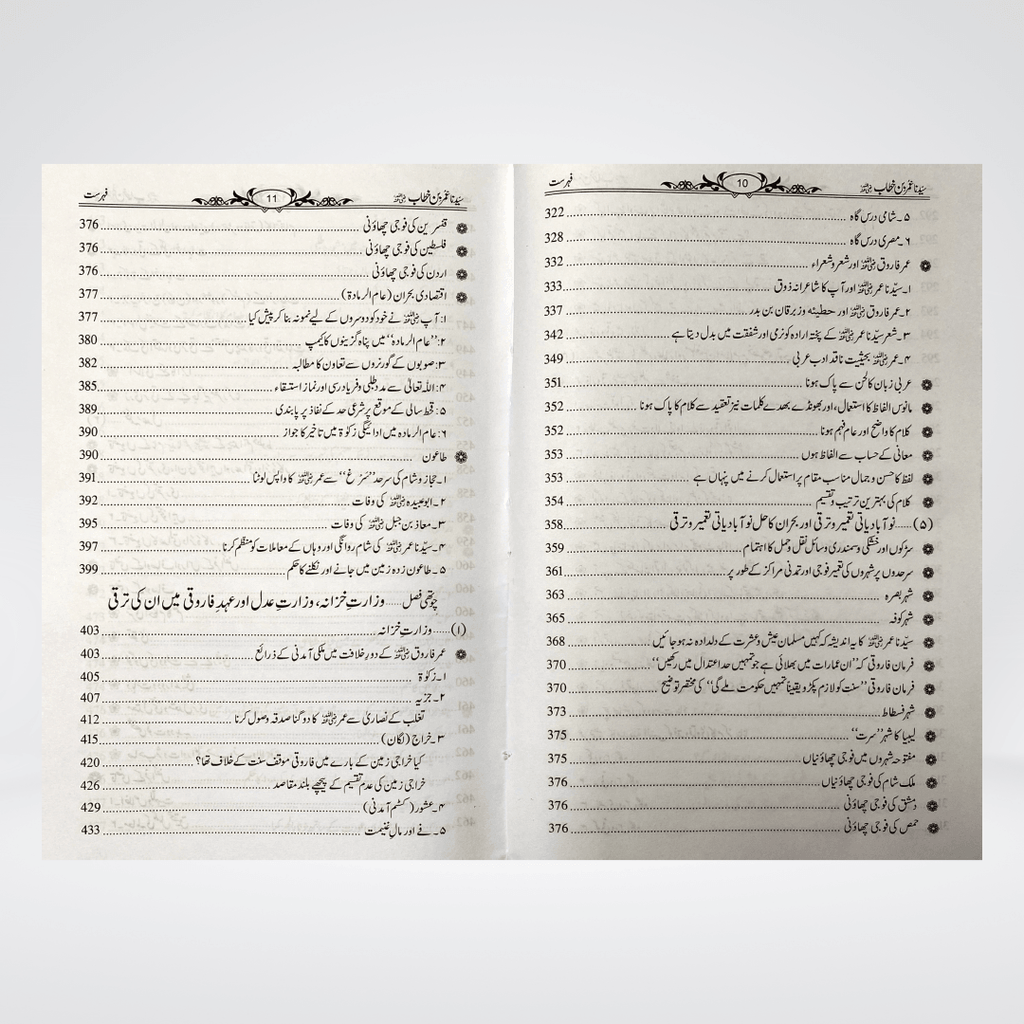 سیدنا عمر بن خطاب رضی اللہ عنہ 10 فہرست
۵۔شامی درس گاہ 322
۶۔مصری درس گاہ 328
عمر فاروق رضی اللہ عنہ اور شعر و شعراء 332
۱۔سیّدنا عمر رضی اللہ عنہ اور آپ کا شاعرانہ ذوق 333
۲۔عمر فاروق رضی اللہ عنہ اور حطیئہ و زبرقان بن بدر 337
۳۔شعر سیّدنا عمر رضی اللہ عنہ کے پختہ ارادہ کو نرمی اور شفقت میں بدل دیتا ہے 342
۴۔عمر رضی اللہ عنہ بحیثیت ناقد ادب عربی 349
عربی زبان کا لحن سے پاک ہونا 351
مانوس الفاظ کا استعمال، اور بھونڈے بھدے کلمات نیز تعقید سے کلام کا پاک ہونا 352
کلام کا واضح اور عام فہم ہونا 352
معانی کے حساب سے الفاظ ہوں 353
لفظ کا حسن و جمال مناسب مقام پر استعمال کرنے میں پنہاں ہے 353
کلام کی بہترین ترتیب و تقسیم 354
(۵) ..... نو آبادیاتی تعمیر و ترقی اور بحران کا حل نو آبادیاتی تعمیر و ترقی 358
سڑکوں اور خشکی و سمندری وسائل نقل و حمل کا اہتمام 359
سرحدوں پر شہروں کی تعمیر فوجی اور تمدنی مراکز کے طور پر 361
شہر بصرہ 363
شہر کوفہ 365
سیّدنا عمر رضی اللہ عنہ کا یہ اندیشہ کہ کہیں مسلمان عیش و عشرت کے دلدادہ نہ ہو جائیں 368
فرمان فاروقی کہ ”ان عمارات میں بھلائی ہے جو تمہیں حد اعتدال میں رکھیں“ 370
فرمان فاروقی ”سنت کو لازم پکڑو یقیناً تمہیں حکومت ملے گی“ کی مختصر توضیح 370
شہر فسطاط 373
لیبیا کا شہر ”سرت“ 375
مفتوحہ شہروں میں فوجی چھاؤنیاں 375
ملک شام کی فوجی چھاؤنیاں 376
دمشق کی فوجی چھاؤنی 376
حمص کی فوجی چھاؤنی 376
سیدنا عمر بن خطاب رضی اللہ عنہ 11 فہرست
قنسرین کی فوجی چھاؤنی 376
فلسطین کی فوجی چھاؤنی 376
اردن کی فوجی چھاؤنی 376
اقتصادی بحران (عام الرمادۃ) 377
۱: آپ رضی اللہ عنہ نے خود کو دوسروں کے لیے نمونہ بنا کر پیش کیا 377
۲: ”عام الرمادہ“ میں پناہ گزینوں کا کیمپ 380
۳: صوبوں کے گورنروں سے تعاون کا مطالبہ 382
۴: اللہ تعالیٰ سے مدد طلبی و فریاد رسی اور نماز استسقاء 385
۵: قحط سالی کے موقع پر شرعی حد کے نفاذ پر پابندی 389
۶: عام الرمادہ میں ادائیگی زکوٰۃ میں تاخیر کا جواز 390
طاعون 390
۱۔حجاز و شام کی سرحد ”سَرْغ“ سے عمر رضی اللہ عنہ کا واپس لوٹنا 391
۲۔ابو عبیدہ رضی اللہ عنہ کی وفات 392
۳۔معاذ بن جبل رضی اللہ عنہ کی وفات 395
۴۔سیّدنا عمر رضی اللہ عنہ کی شام روانگی اور وہاں کے معاملات کو منظم کرنا 397
۵۔طاعون زدہ زمین میں جانے اور نکلنے کا حکم 399
چوتھی فصل ..... وزارتِ خزانہ، وزارتِ عدل اور عہدِ فاروقی میں ان کی ترقی
(۱) ..... وزارتِ خزانہ 403
عمر فاروق رضی اللہ عنہ کے دور خلافت میں ملکی آمدنی کے ذرائع 403
۱۔زکوٰۃ 405
۲۔جزیہ 407
تغلب کے نصاریٰ سے عمر رضی اللہ عنہ کا دوگنا صدقہ وصول کرنا 412
۳۔خراج (لگان) 415
کیا خراجی زمین کے بارے میں فاروقی موقف سنت کے خلاف تھا؟ 420
خراجی زمین کی عدم تقسیم کے پیچھے بلند مقاصد 426
۴۔عشور (کسٹم آمدنی) 429
۵۔فے اور مال غنیمت 433